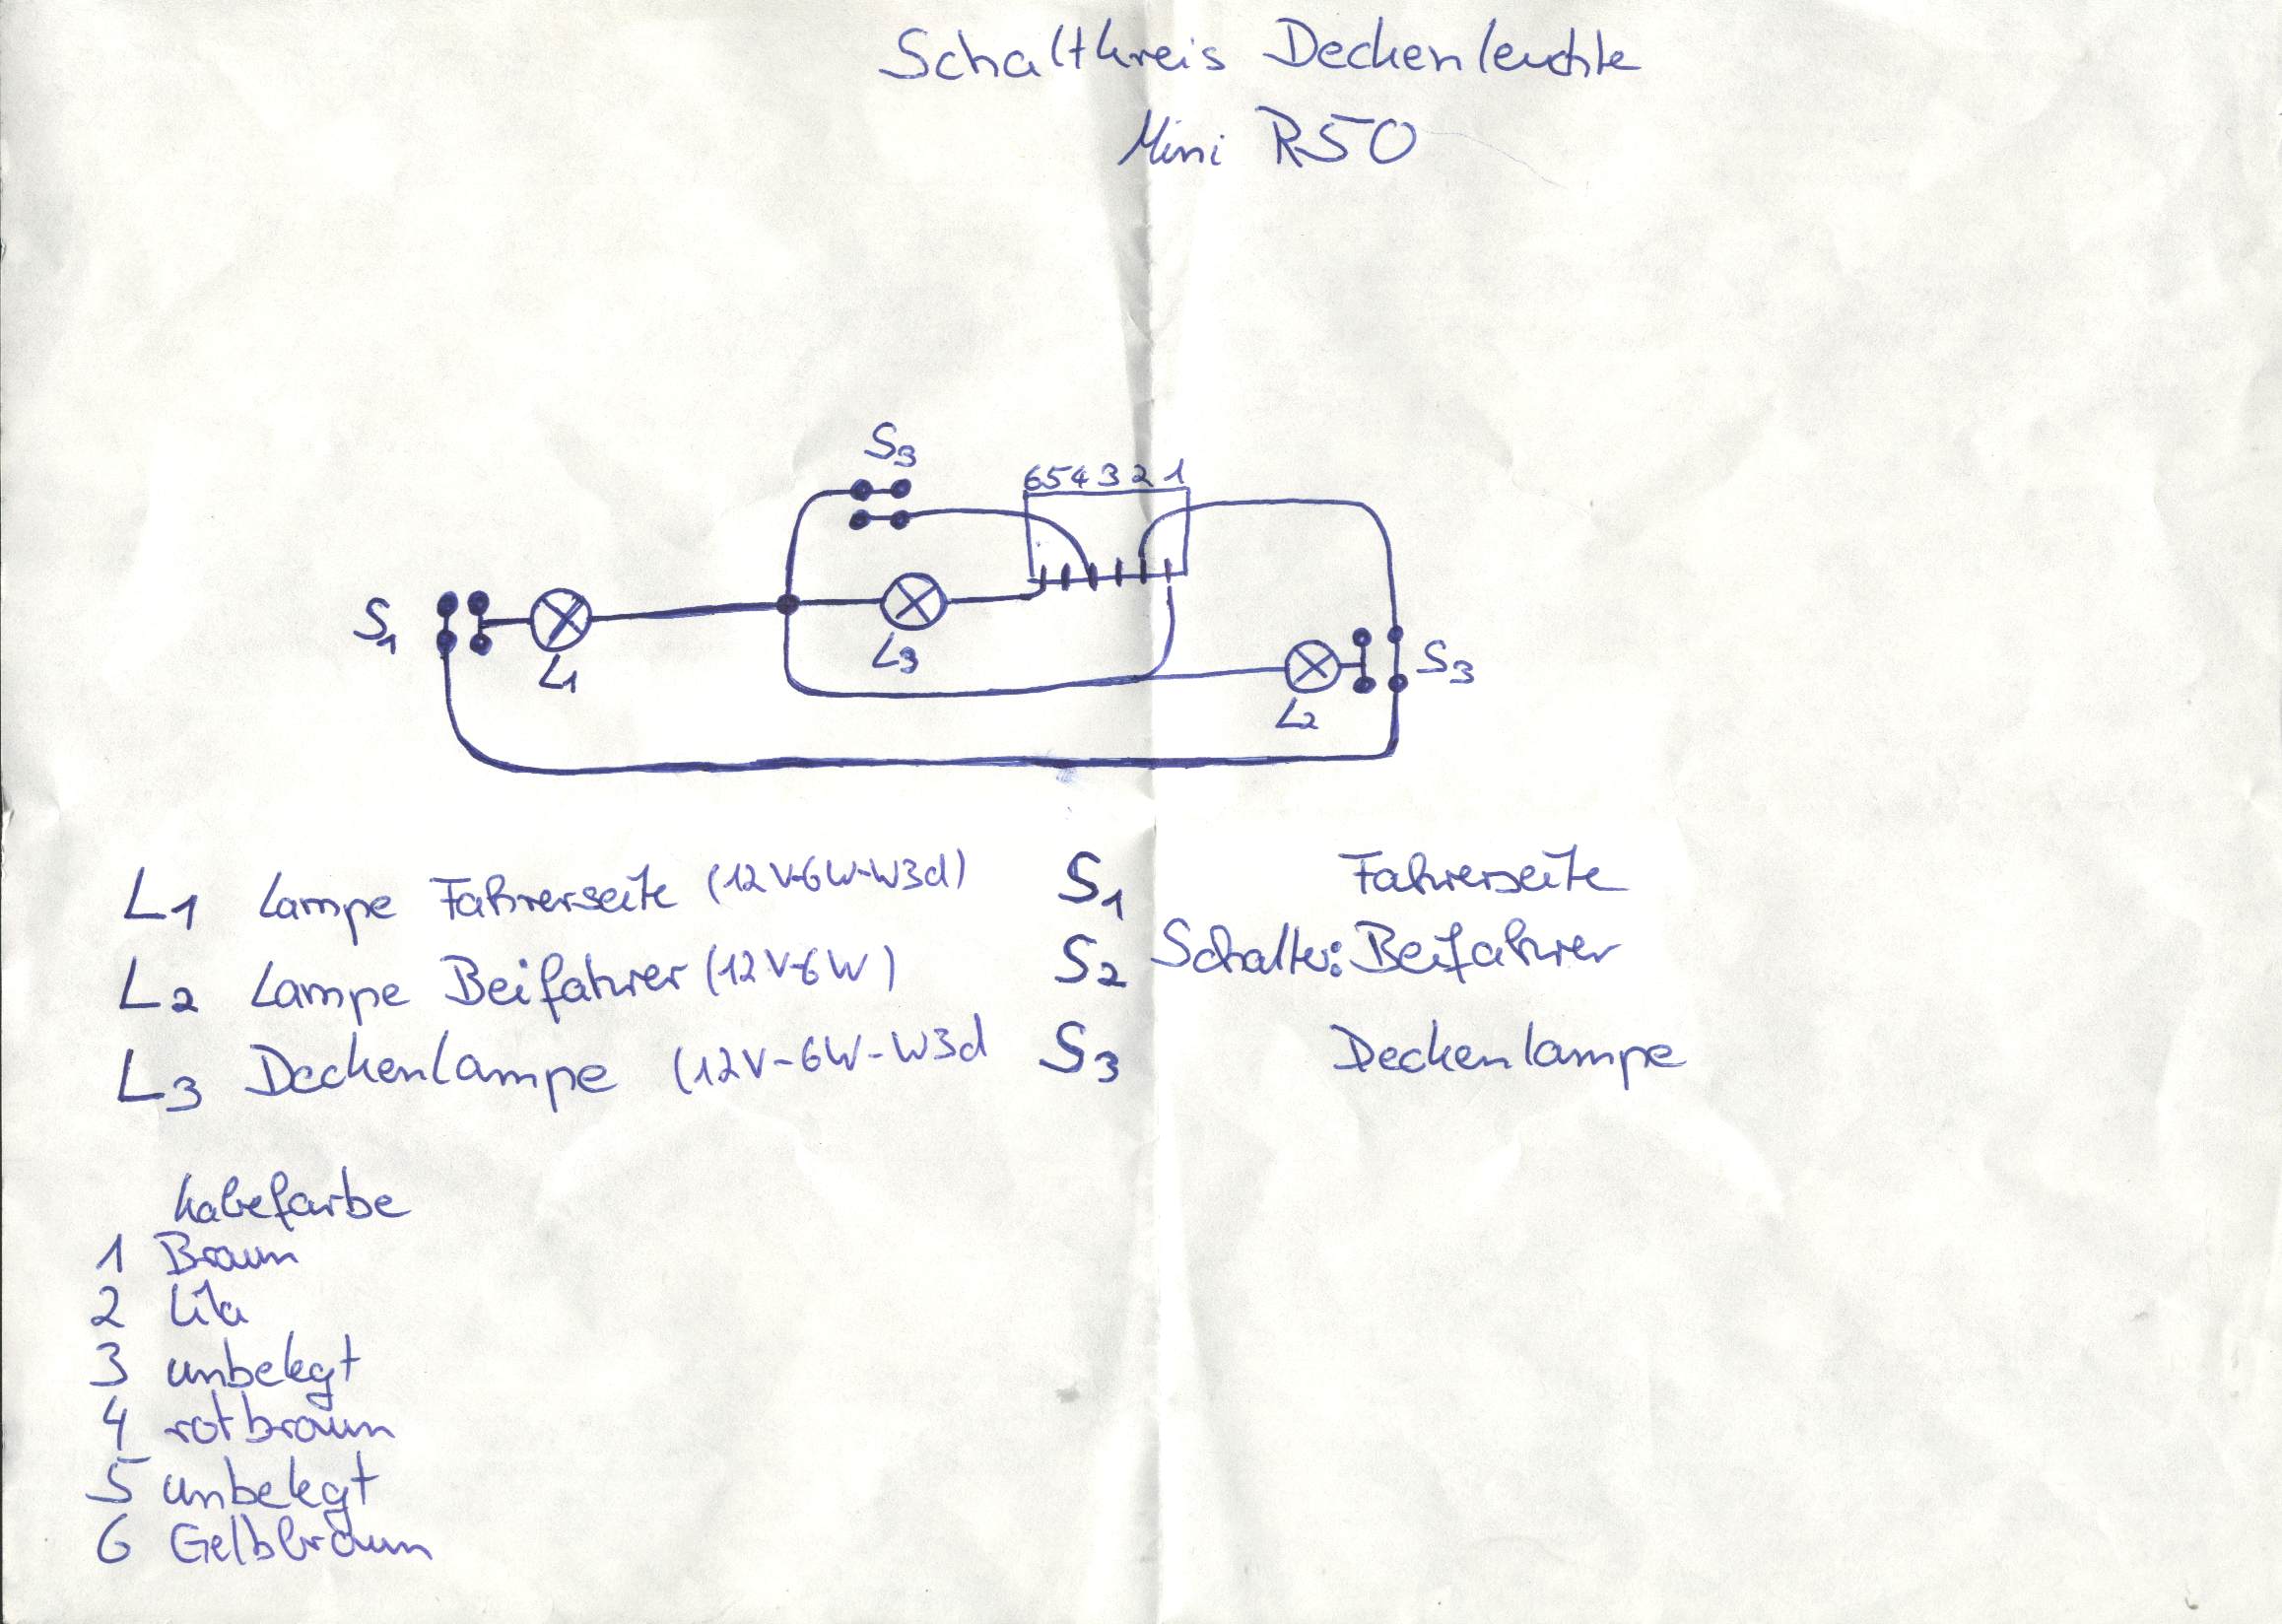 Schaltkreis Deckenleuchte
Mini R50
S3
6 5 4 3 2 1
S1
L1
L3
L2
S3
L1 Lampe Fahrerseite (12V-6W-W3d)
L2 Lampe Beifahrer (12V-6W)
L3 Deckenlampe (12V-6W-W3d
S1 Fahrerseite
S2 Schalter: Beifahrer
S3 Deckenlampe
Kabefarbe
1 Braun
2 Lila
3 unbelegt
4 rotbraun
5 unbelegt
6 Gelbbraun